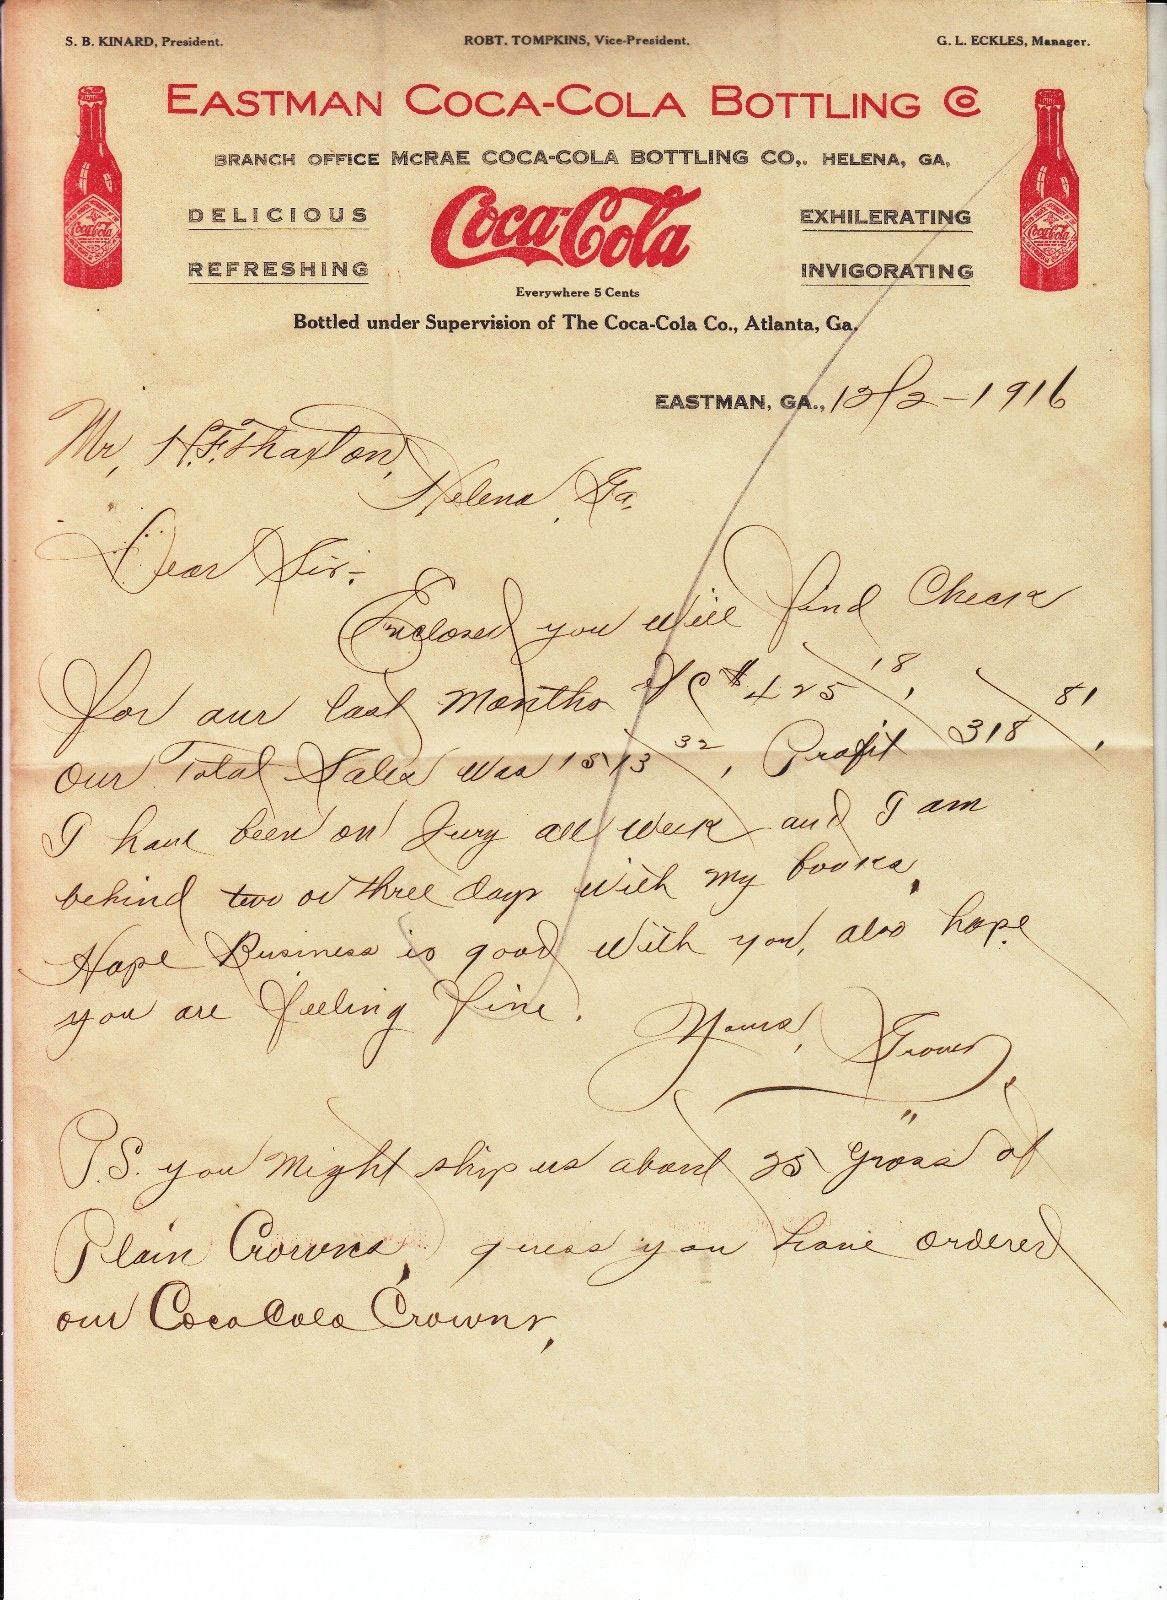 S. B. KINARD, President. ROBT. TOMPKINS, Vice-President. G. L. ECKLES, Manager.
EASTMAN COCA-COLA BOTTLING CO
BRANCH OFFICE MCRAE COCA-COLA BOTTLING CO,. HELENA, GA,
DELICIOUS Coca-Cola EXHILERATING
REFRESHING INVIGORATING
Everywhere 5 Cents
Bottled under Supervision of The Coca-Cola Co., Atlanta, Ga.
Coca-Cola
Coca-Cola
EASTMAN, GA., 12/2-1916
Mr, H.F. Thaxton,
Helena, Ga.
Dear Sir:-
Enclosed you will find Check
for our last Months $425/18,
Our Total Sales was 1513/32, Profit 318/81,
I have been on Jury all week and I am
behind two or three days with my books,
Hope Business is good with you, also hope
you are feeling fine.
Yours, Grover,
P.S. you might ship us about 25 gross of
Plain Crowns, guess you have ordered
our CocaCola Crowns,